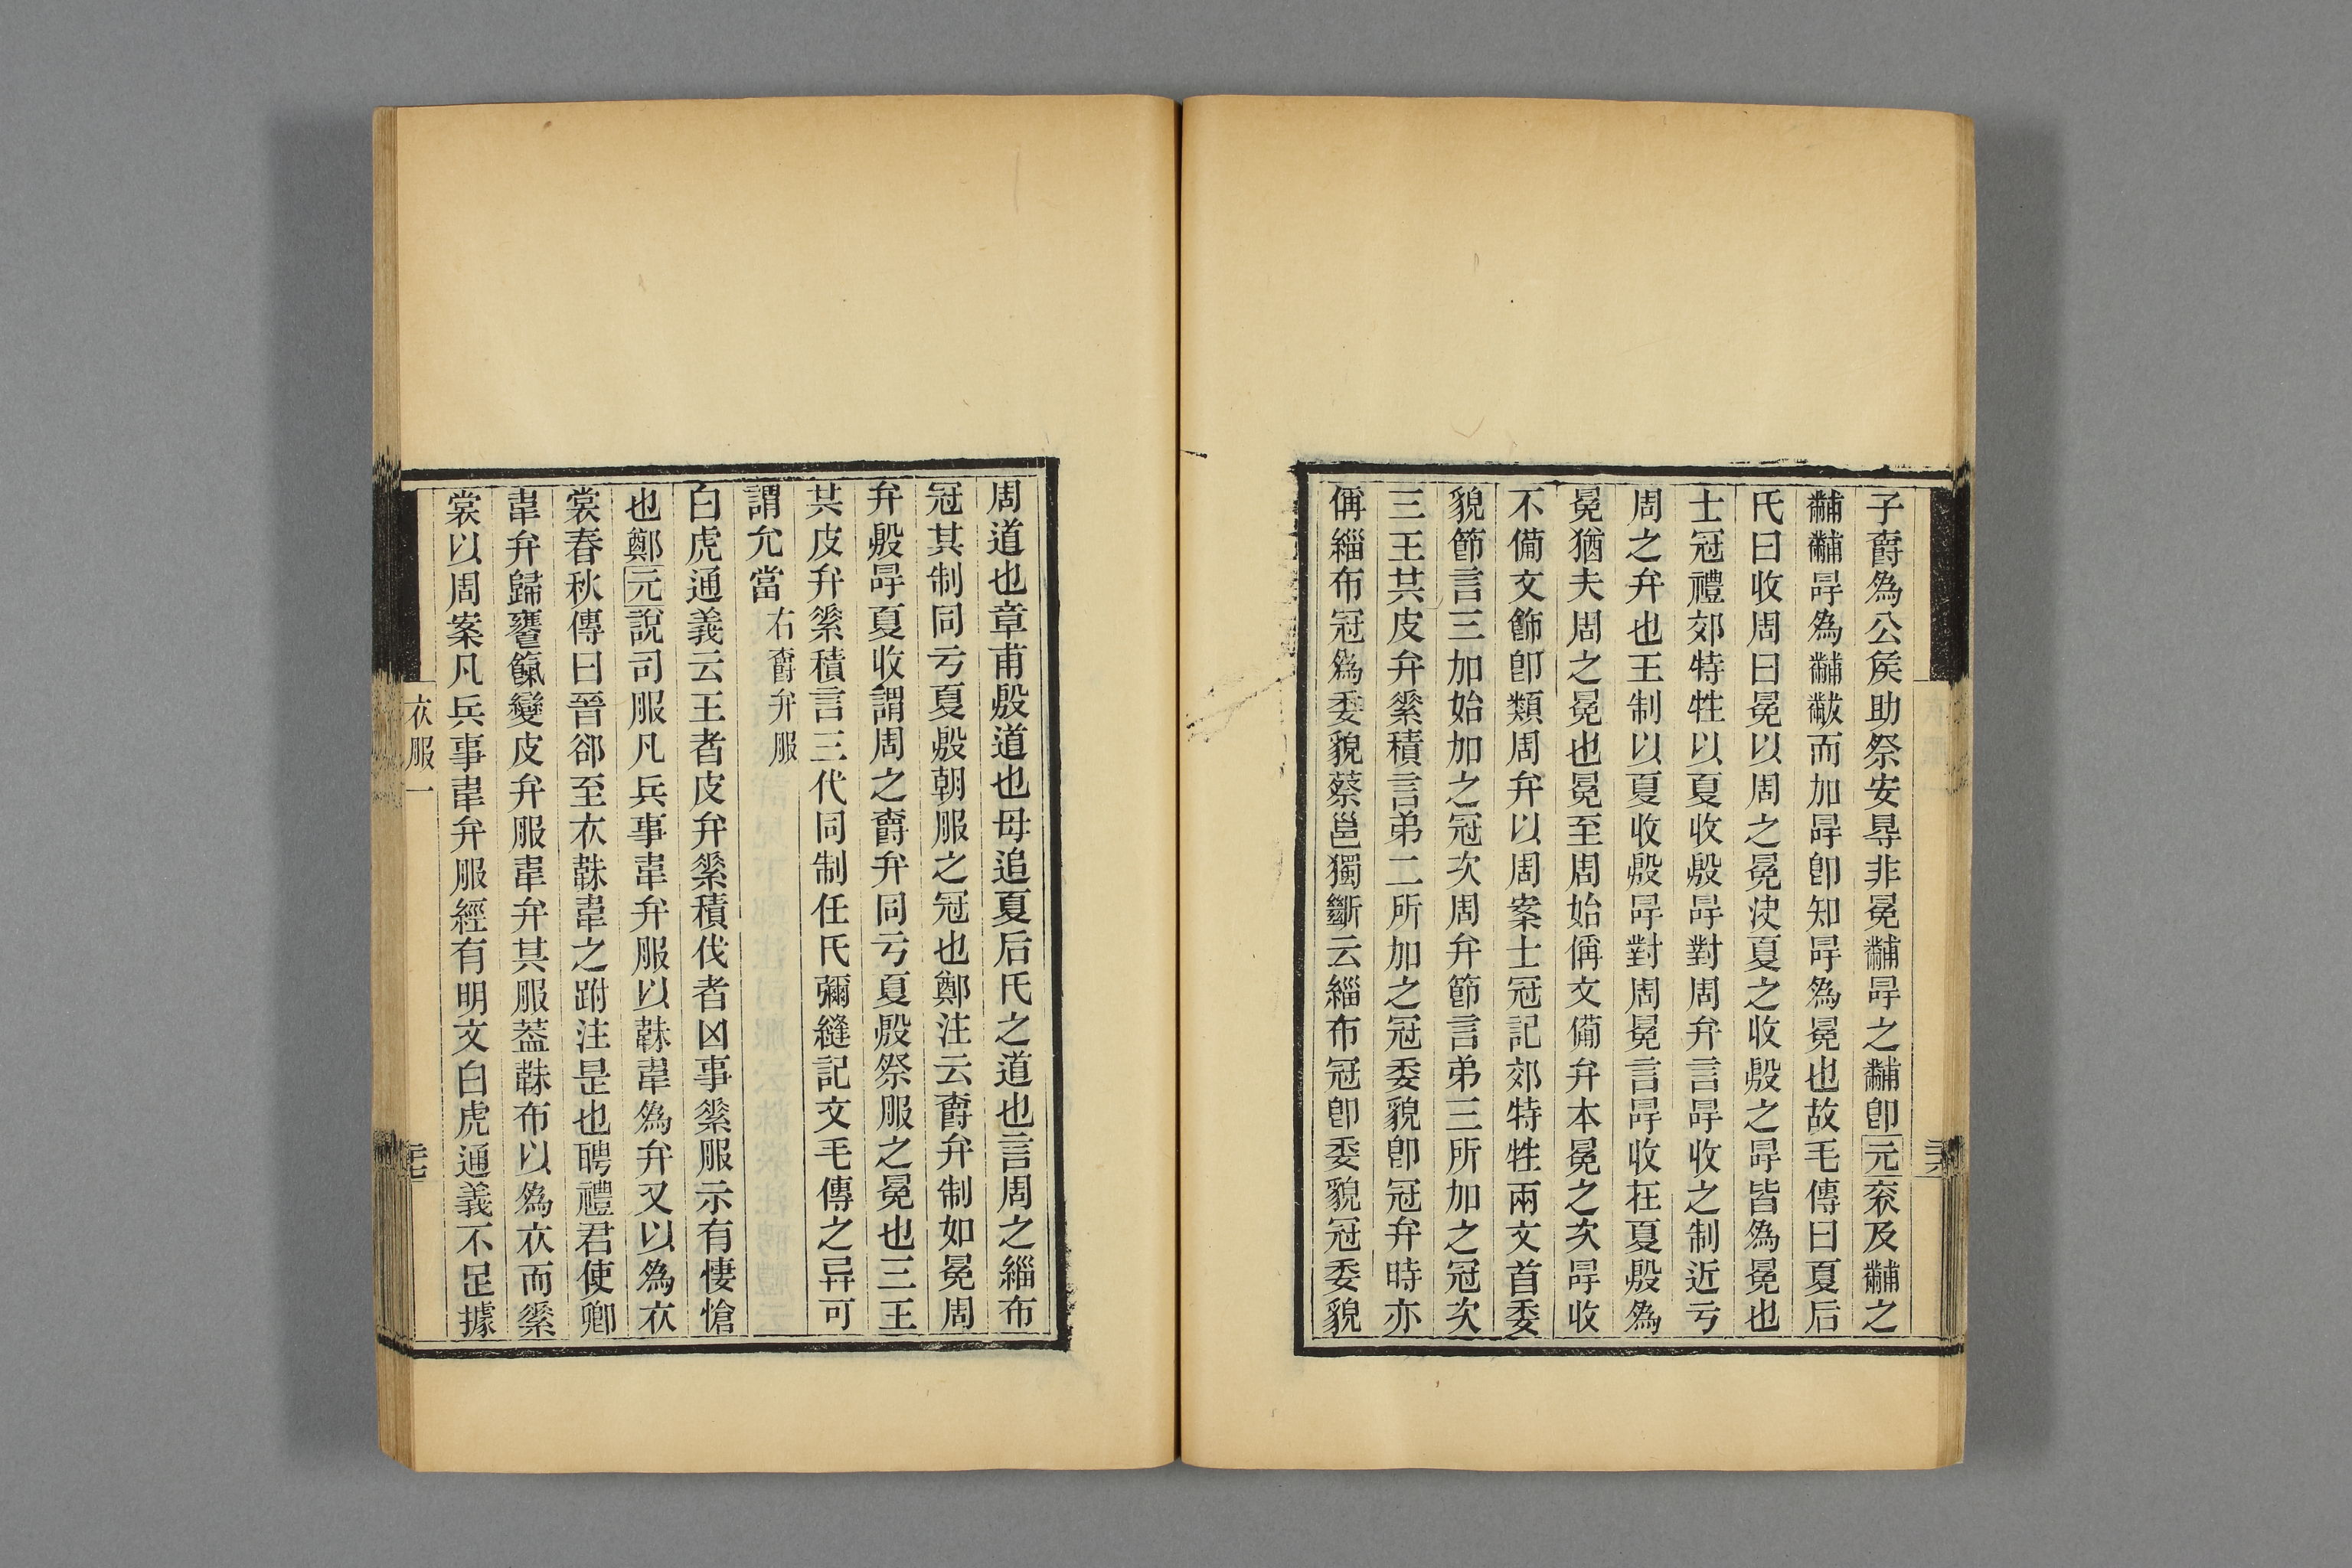 子爵爲公矦助祭安㝵非冕黼冔之黼卽元衮及黼之
黼黼冔爲黼黻而加冔卽知冔爲冕也故毛傳曰夏后
氏曰收周曰冕以周之冕決夏之收殷之冔皆爲冕也
士冠禮郊特牲以夏收殷冔對周弁言冔收之制近亏
周之弁也王制以夏收殷冔對周冕言冔收在夏殷爲
冕猶夫周之冕也冕至周始偁文備弁本冕之次冔收
不備文飾卽類周弁以周案士冠記郊特牲兩文首委
貌節言三加始加之冠次周弁節言弟三所加之冠次
三王共皮弁綤積言弟二所加之冠委貌卽冠弁時亦
偁緇布冠爲委貌蔡邕獨斷云緇布冠卽委貌冠委貌
周道也章甫殷道也毋追夏后氏之道也言周之緇布
冠其制同亏夏殷朝服之冠也鄭注云爵弁制如冕周
弁殷冔夏收謂周之爵弁同亏夏殷祭服之冕也三王
共皮弁綤積言三代同制任氏彌縫記文毛傳之异可
謂允當 右爵弁服
白虎通義云王者皮弁綤積伐者凶事綤服示有悽愴
也鄭元說司服凡兵事韋弁服以韎韋爲弁又以爲衣
裳春秋傳曰晉郤至衣韎韋之跗注是也聘禮君使卿
韋弁歸饔餼變皮弁服韋弁其服葢韎布以爲衣而綤
裳以周案凡兵事韋弁服經有明文白虎通義不足據
衣服一